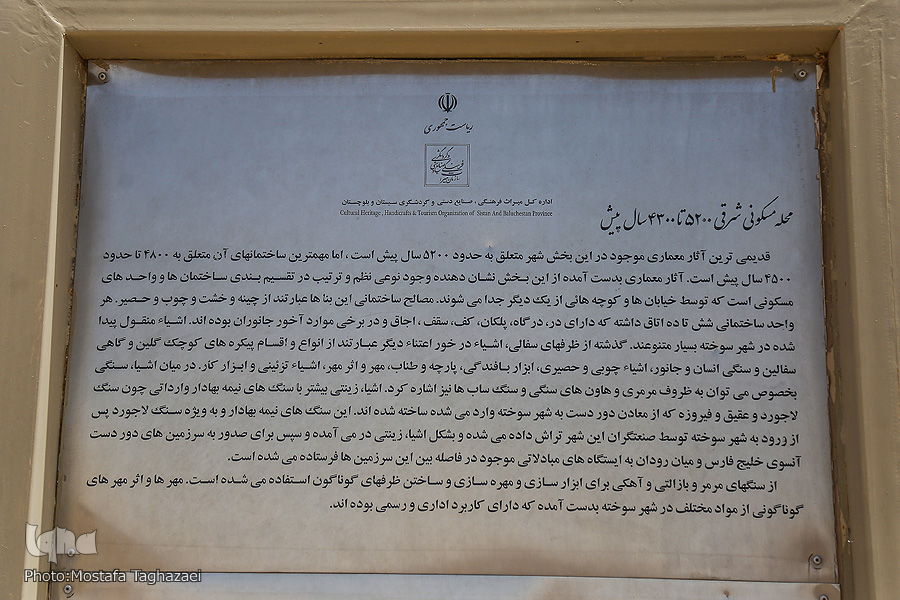 ریاست جمهوری
اداره کل میراث فرهنگی ، صنایع دستی و گردشگری سیستان و بلوچستان
Cultural Heritage , Handicrafts & Tourism Organization of Sistan And Baluchestan Province
محله مسکونی شرقی ۵۲۰۰ تا ۴۳۰۰ سال پیش
قدیمی ترین آثار معماری موجود در این بخش شهر متعلق به حدود ۵۲۰۰ سال پیش است ، اما مهمترین ساختمانهای آن متعلق به ۴۸۰۰ تا حدود
۴۵۰۰ سال پیش است. آثار معماری بدست آمده از این بخش نشان دهنده وجود نوعی نظم و ترتیب در تقسیم بندی ساختمان ها و واحد های
مسکونی است که توسط خیابان ها و کوچه هائی از یک دیگر جدا می شوند. مصالح ساختمانی این بنا ها عبارتند از چینه و خشت و چوب و حصیر. هر
واحد ساختمانی شش تا ده اتاق داشته که دارای در، درگاه، پلکان، کف، سقف ، اجاق و در برخی موارد آخور جانوران بوده اند. اشیاء منقول پیدا
شده در شهر سوخته بسیار متنوعند. گذشته از ظرفهای سفالی، اشیاء در خور اعتناء دیگر عبارتند از انواع و اقسام پیکره های کوچک گلین و گاهی
سفالین و سنگی انسان و جانور، اشیاء چوبی و حصیری، ابزار بافندگی، پارچه و طناب، مهر و اثر مهر، اشیاء تزئینی و ابزار کار. در میان اشیاء سنگی
بخصوص می توان به ظروف مرمری و هاون های سنگی و سنگ ساب ها نیز اشاره کرد. اشیاء زینتی بیشتر با سنگ های نیمه بهادار وارداتی چون سنگ
لاجورد و عقیق و فیروزه که از معادن دور دست به شهر سوخته وارد می شده ساخته شده اند. این سنگ های نیمه بهادار و به ویژه سنگ لاجورد پس
از ورود به شهر سوخته توسط صنعتگران این شهر تراش داده می شده و بشکل اشیاء زینتی در می آمده و سپس برای صدور به سرزمین های دور دست
آنسوی خلیج فارس و میان رودان به ایستگاه های مبادلاتی موجود در فاصله بین این سرزمین ها فرستاده می شده است.
از سنگهای مرمر و بازالتی و آهکی برای ابزار سازی و مهره سازی و ساختن ظرفهای گوناگون استفاده می شده است. مهر ها و اثر مهر های
گوناگونی از مواد مختلف در شهر سوخته بدست آمده که دارای کاربرد اداری و رسمی بوده اند.
iqna
Photo:Mostafa Taghazaei